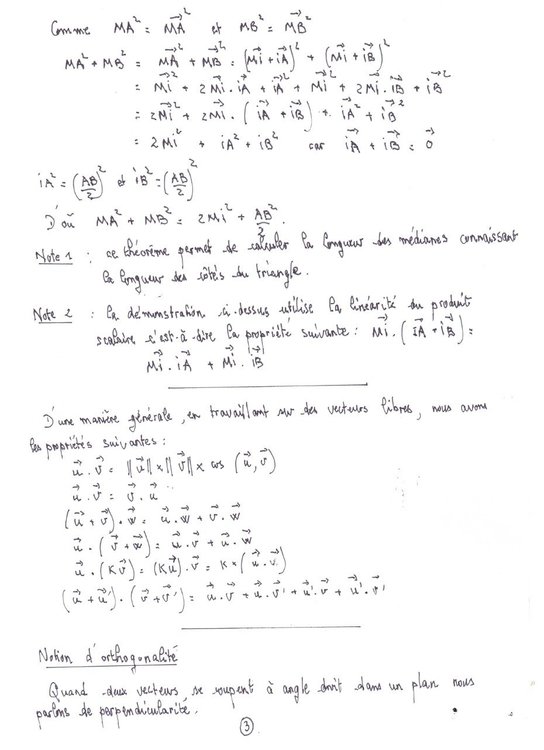 Comme MA² = \vec{MA}² et MB² = \vec{MB}²
MA² + MB² = \vec{MA}² + \vec{MB}² = (\vec{Mi} + \vec{iA})² + (\vec{Mi} + \vec{iB})²
= \vec{Mi}² + 2\vec{Mi}.\vec{iA} + \vec{iA}² + \vec{Mi}² + 2\vec{Mi}.\vec{iB} + \vec{iB}²
= 2\vec{Mi}² + 2\vec{Mi}.(\vec{iA} + \vec{iB}) + \vec{iA}² + \vec{iB}²
= 2Mi² + iA² + iB² car \vec{iA} + \vec{iB} = \vec{0}
iA² = (AB/2)² et iB² = (AB/2)²
D'où MA² + MB² = 2Mi² + AB²/2.
Note 1 : ce théorème permet de calculer la longueur des médianes connaissant
la longueur des côtés du triangle.
Note 2 : la démonstration ci-dessus utilise la linéarité du produit
scalaire c'est-à-dire la propriété suivante : \vec{Mi}.(\vec{iA} + \vec{iB}) =
\vec{Mi}.\vec{iA} + \vec{Mi}.\vec{iB}
D'une manière générale, en travaillant sur des vecteurs libres, nous avons
les propriétés suivantes :
\vec{u}.\vec{v} = ||\vec{u}|| × ||\vec{v}|| × cos (\vec{u},\vec{v})
\vec{u}.\vec{v} = \vec{v}.\vec{u}
(\vec{u} + \vec{v}).\vec{w} = \vec{u}.\vec{w} + \vec{v}.\vec{w}
\vec{u}.(\vec{v} + \vec{w}) = \vec{u}.\vec{v} + \vec{u}.\vec{w}
\vec{u}.(K\vec{v}) = (K\vec{u}).\vec{v} = K × (\vec{u}.\vec{v})
(\vec{u} + \vec{u}').(\vec{v} + \vec{v}') = \vec{u}.\vec{v} + \vec{u}.\vec{v}' + \vec{u}'.\vec{v} + \vec{u}'.\vec{v}'
Notion d'orthogonalité
Quand deux vecteurs se coupent à angle droit dans un plan nous
parlons de perpendicularité.
3